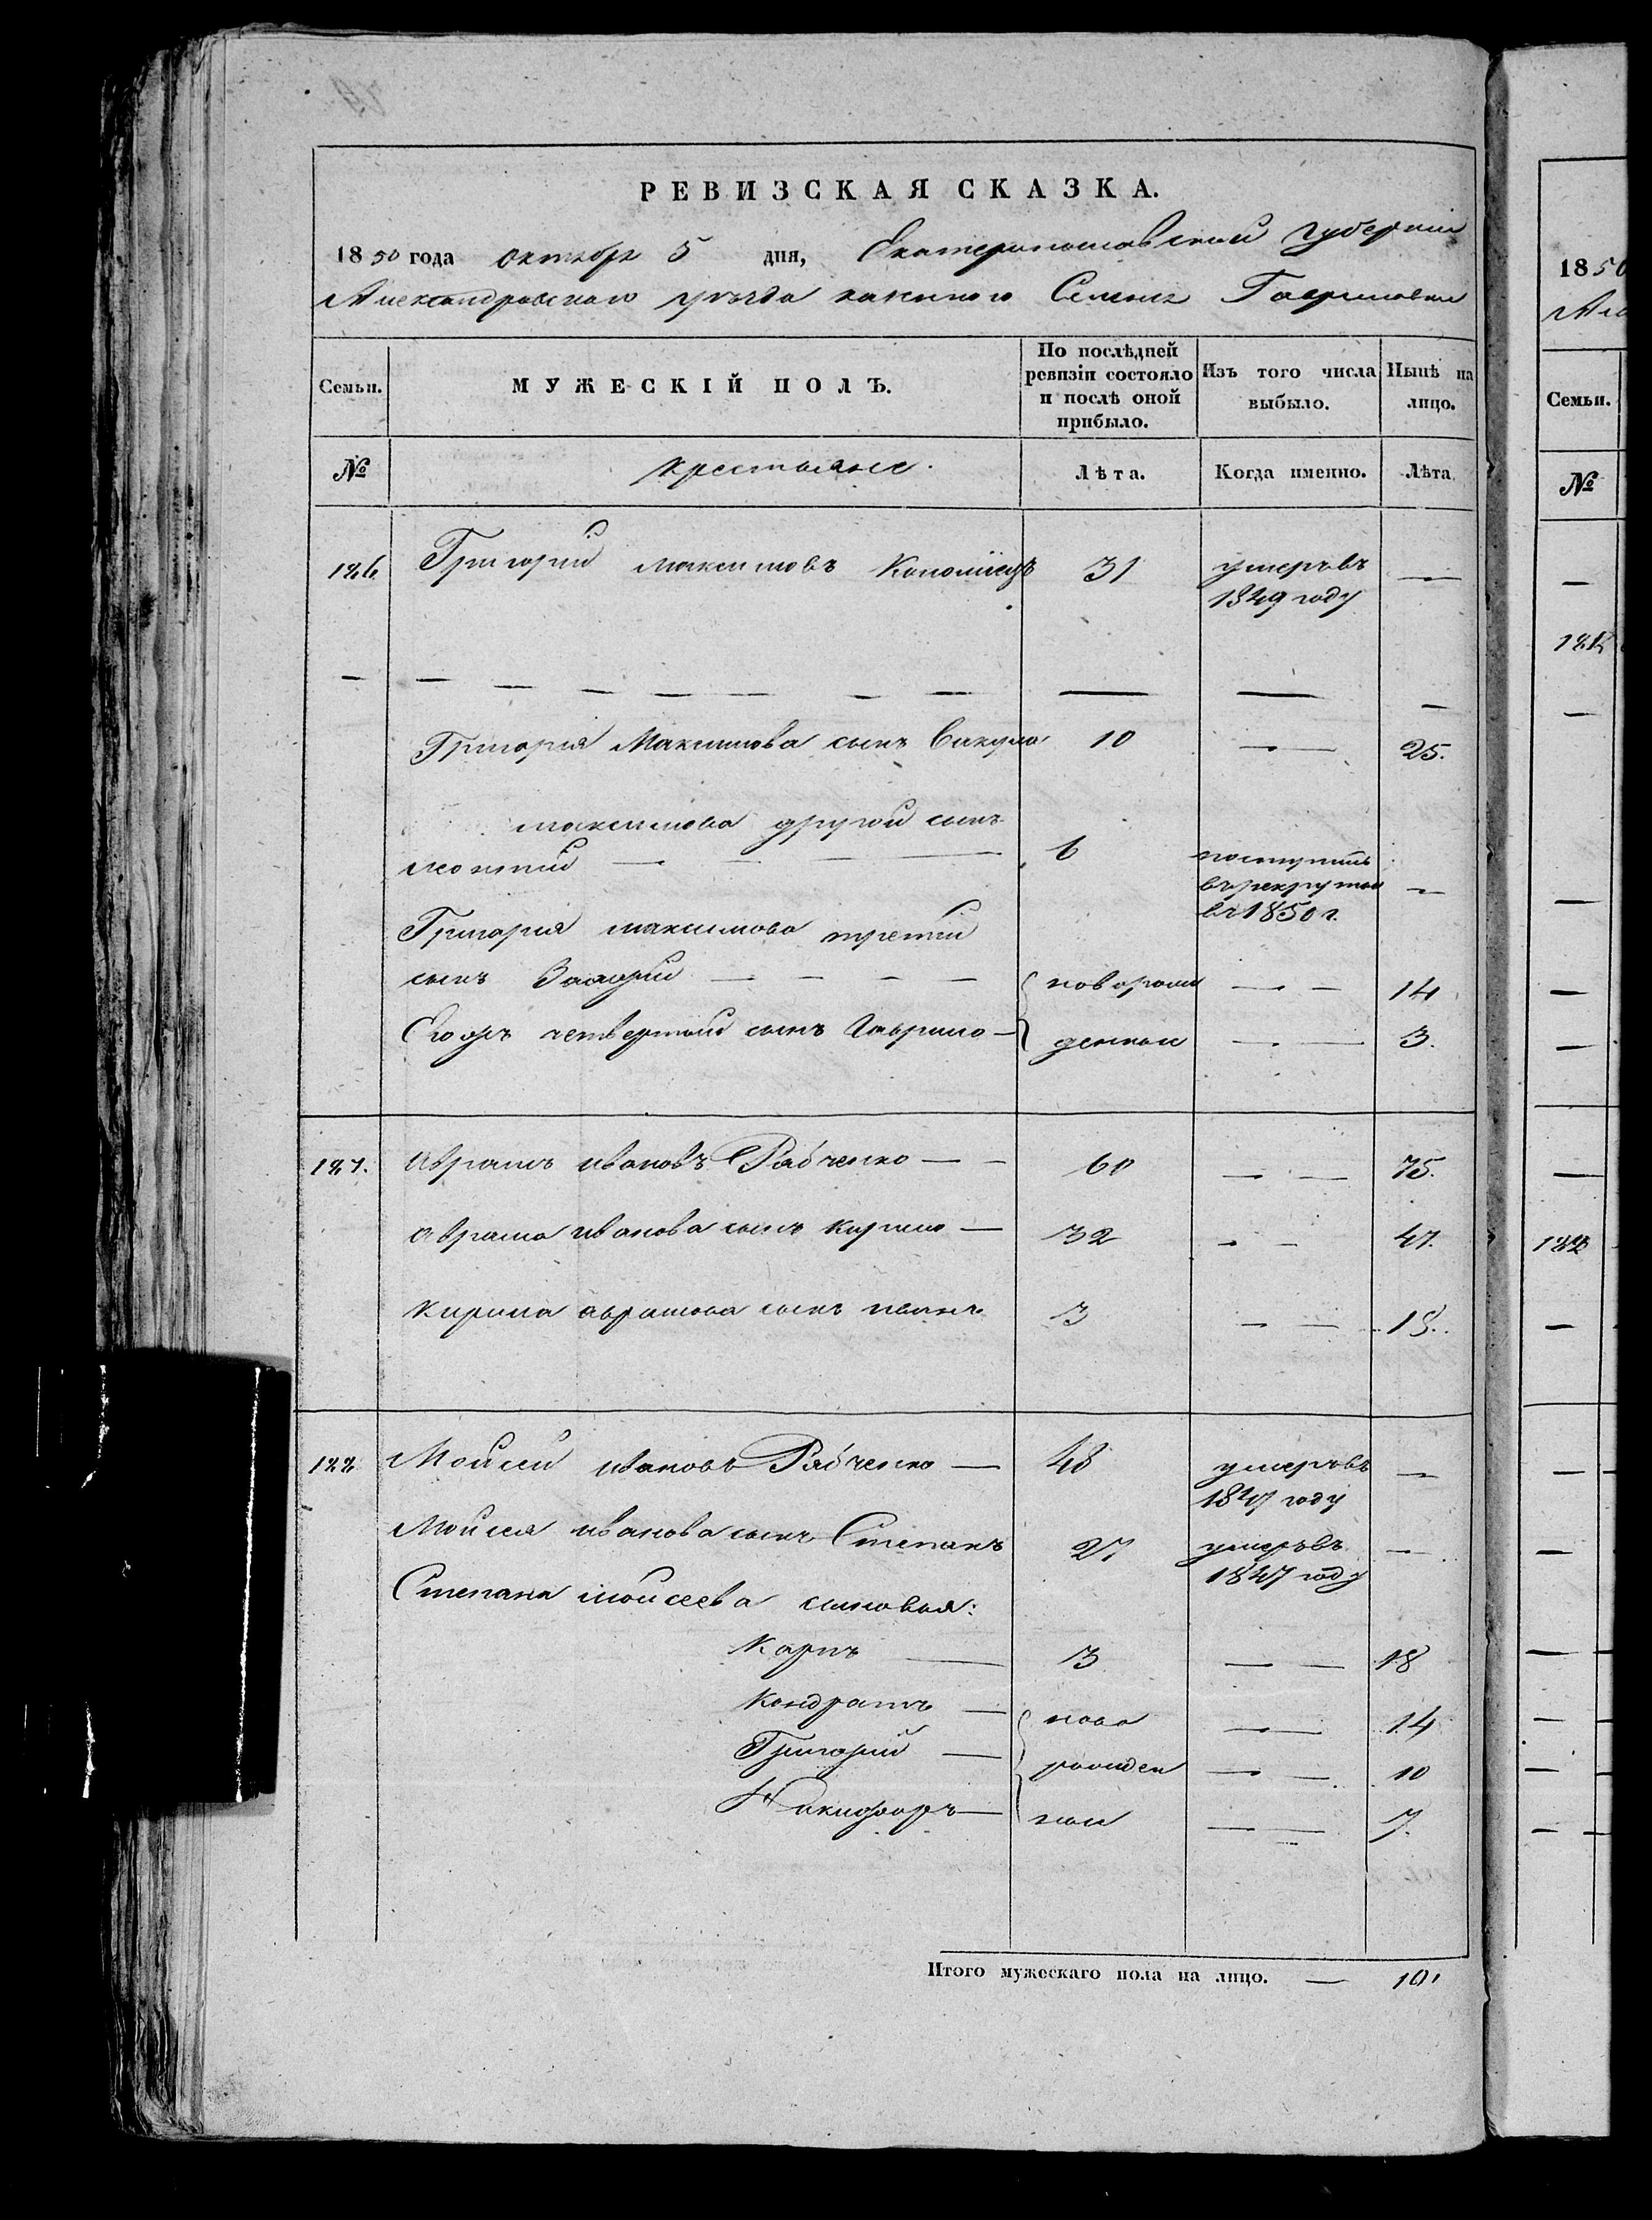 РЕВИЗСКАЯ СКАЗКА.
1850 года октября 5 дня, Екатеринославской Губерніи
Александровского уезда казенного Селенія Гавриловки
Семьи. МУЖЕСКІЙ ПОЛЪ. По послѣдней ревизіи состояло и послѣ оной прибыло. Изъ того числа выбыло. Нынѣ на лицо.
№ крестьяне. Лѣта. Когда именно. Лѣта
Григорий Максимовъ Коломіецъ 31 умеръ въ —
1849 году
— — — — — — — — — — —
Григория Максимова сынъ Вакула 10 — — 25.
максимова другой сынъ
леонтий — — — — 6 поступилъ
въ рекруты —
въ 1850 г.
Григория максимова третий
сынъ — — — — новорож — — 14
четвертый сынъ Гаврило — денные — — 3.
187. Аврамъ ивановъ Рябченко — — 60 — — 75.
аврама иванова сынъ кирило — 32 — — 47.
Кирила аврамова сынъ иванъ 3 — — 18.
188 Моисей ивановъ Рябченко — 48 умеръ въ —
году
Моисея иванова сынъ Степанъ 27 умеръ въ —
1847 году
Степана моисеева сыновья:
Карпъ — 3 — — 18
Кондратъ — ново — — 14
Григорий — рожден — — 10
Никифоръ — ные — — 7.
Итого мужескаго пола на лицо. — 10
1850
Семьи.
№